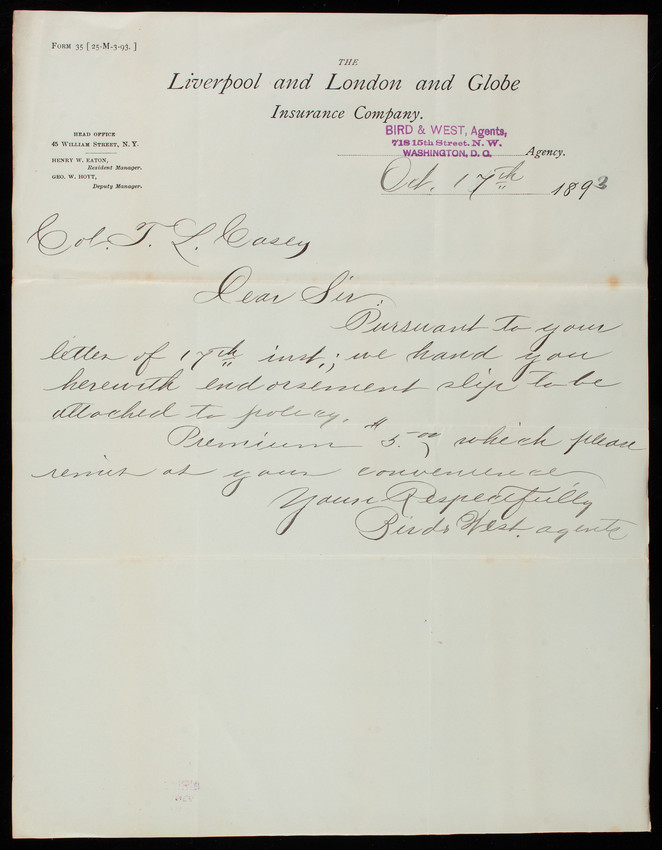 FORM 35 [ 25-M-3-93. ]
THE
Liverpool and London and Globe
Insurance Company.
HEAD OFFICE
45 WILLIAM STREET, N. Y.
HENRY W. EATON,
Resident Manager.
GEO. W. HOYT,
Deputy Manager.
BIRD & WEST, Agents,
718 15th Street. N. W.
WASHINGTON, D. C.
Agency.
Oct. 17th 1893
Col. T. L. Casey
Dear Sir:
Pursuant to your
letter of 17th inst,; we hand you
herewith endorsement slip to be
attached to policy.
Premium $5.00, which please
remit at your convenience
Yours Respectfully
Bird & West. agents